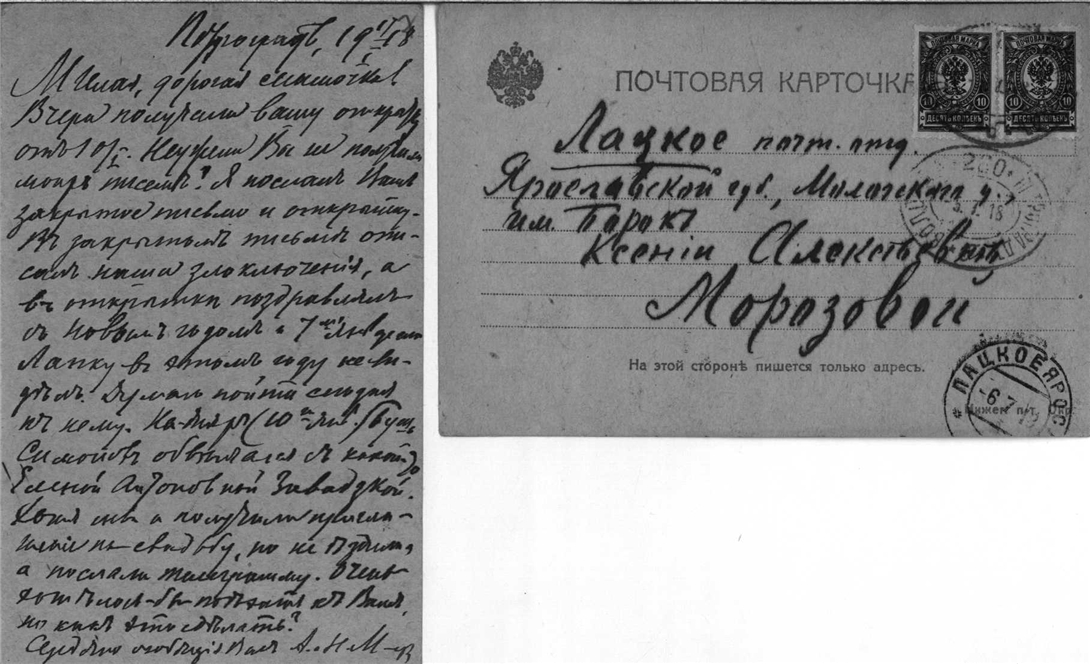 Петроградъ, 19 17/I 18
Милая, дорогая семеюшка!
Вчера получили вашу открытку
отъ 10/I. Неужели Вы не получили
моихъ писемъ? Я послалъ Вамъ
закрытое письмо и открытку.
Въ закрытомъ письмѣ опи-
салъ наша злоключенія, а
въ открыткѣ поздравлялъ
съ Новымъ годомъ и 7
Лапку въ этомъ году не ви-
дѣлъ. Думаю пойти сегодня
къ нему. На-дняхъ (10
Симоновъ обвѣнчался съ какой-то
Еленой Антоновной Завадской.
Хотя мы и получили пригла-
шеніе на свадьбу, но не ѣздили,
а послали телеграмму. Очень
хотѣлось-бы поѣхать къ Вамъ,
но какъ это сдѣлать?
Сердечно Вамъ А. и М-
ПОЧТОВАЯ КАРТОЧКА
ПОЧТОВАЯ МАРКА
10 10
ДЕСЯТЬ КОПѢЕКЪ
ПОЧТОВАЯ МАРКА
10 10
ДЕСЯТЬ КОПѢЕКЪ
Лацкое почт. отд.
Ярославской губ., Мологскаго у.
им. Баракъ
Ксеніи Алексѣевнѣ
Морозовой
На этой сторонѣ пишется только адресъ.
ЛАЦКОЕ ЯРОС